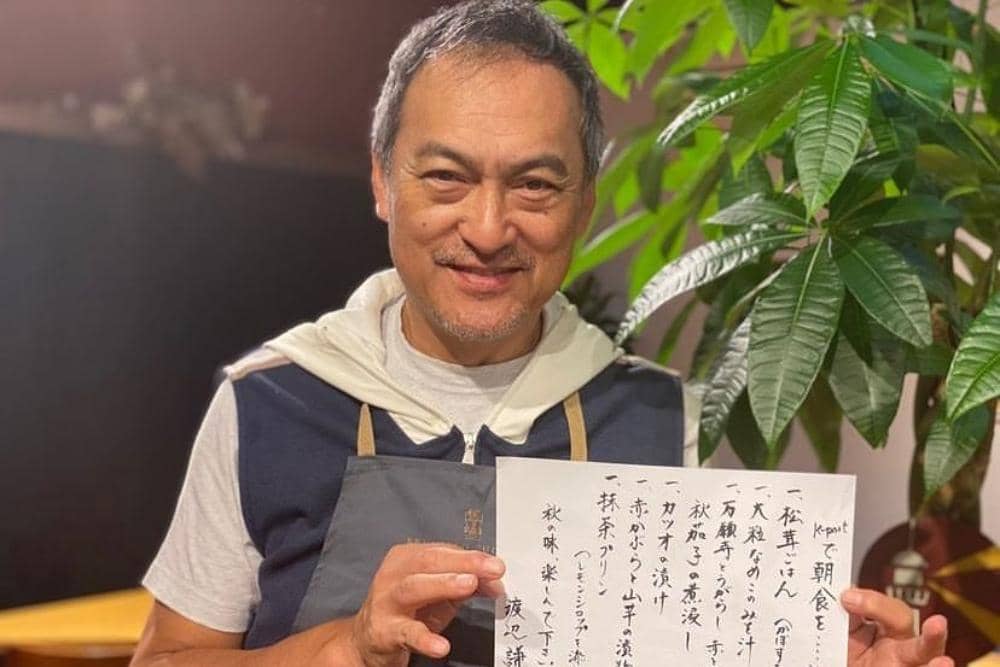 K-portで朝食を‥‥‥
一、松茸ごはん (かぼす
一、大粒なめこのみそ汁
一、万願寺とうがらし 赤
秋茄子の煮浸し
一、カツオの漬け
一、赤かぶらと山芋の漬物
一、抹茶プリン
(レモンシロップを添
秋の味、楽しんで下さい。
渡辺謙